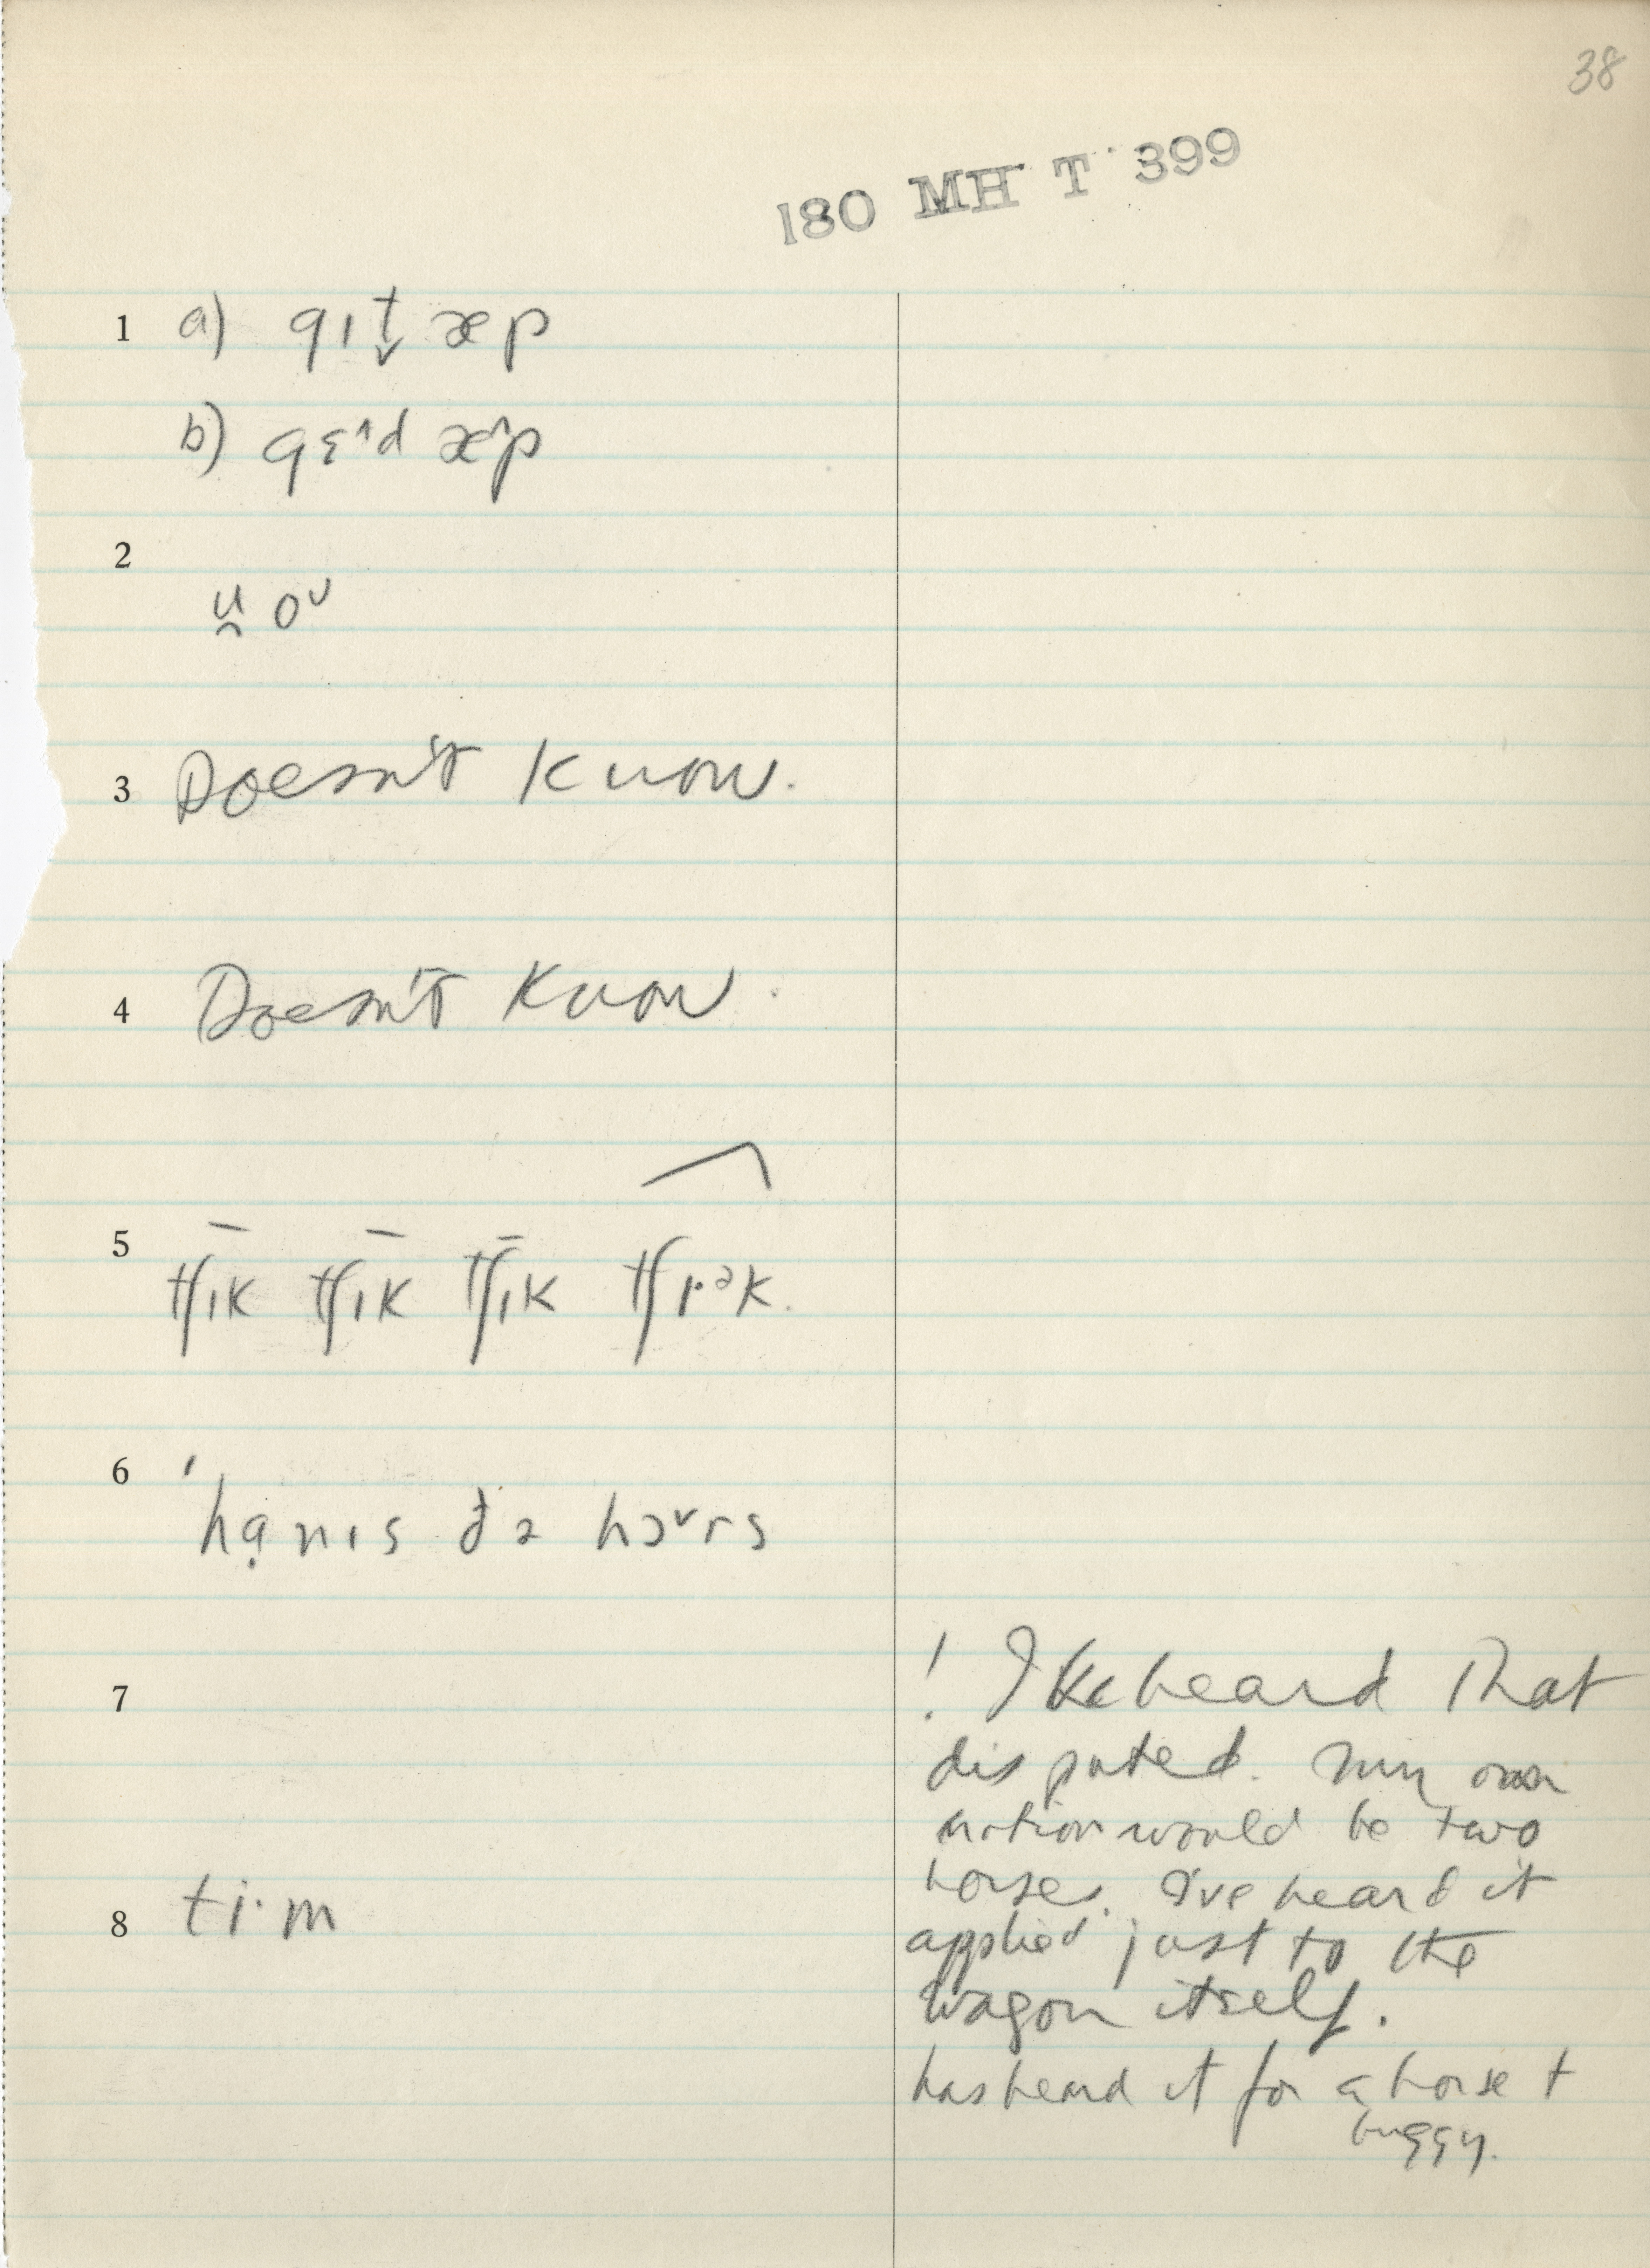 38
180 MH T 399
1 a) gɪt̬ æp
b) gɛˈᶺd æ^p
2
u̯ oᵛ
3 Doesn't know.
4 Doesn't know.
5 tʃɪk tʃɪk tʃɪk tʃɪ·ᵊk.
6 ˈhạnɪs ðə hɔᵛrs
7
! I've heard that
disputed. My own
notion would be two
horses. I've heard it
8 ti·m
applied just to the
wagon itself.
has heard it for a horse +
buggy.